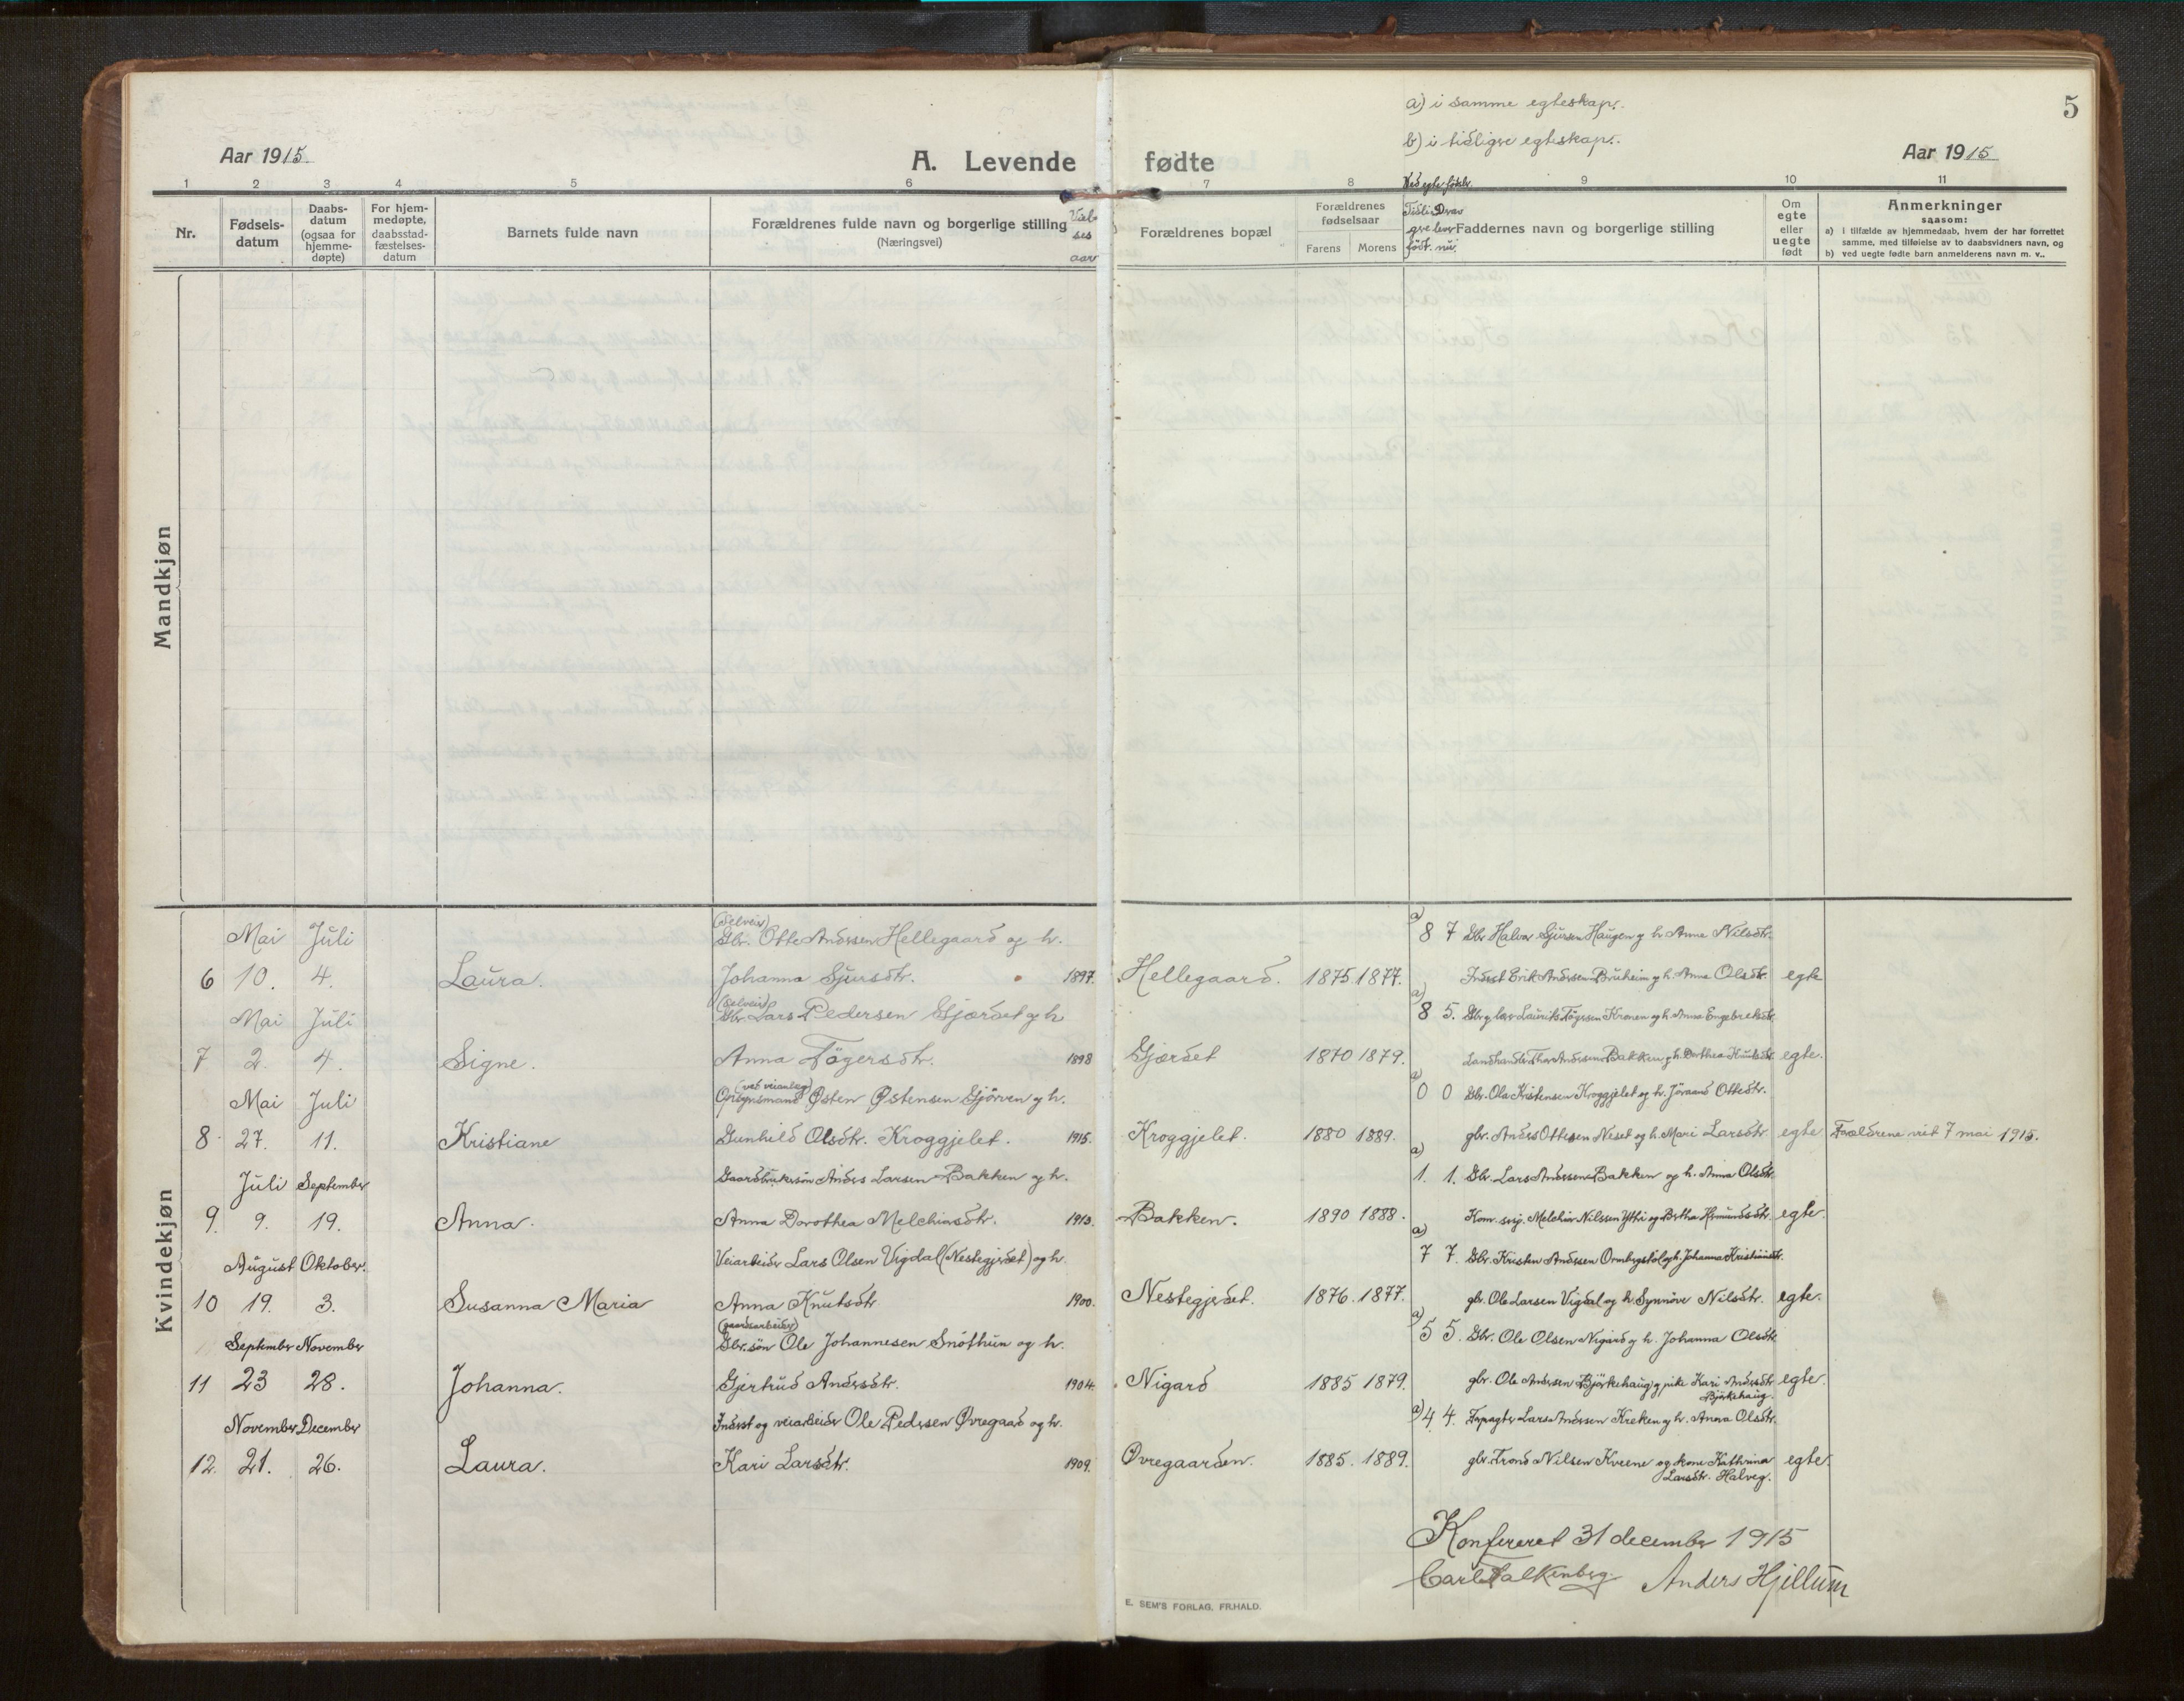 5
a) i samme egteskap:.
b) i tidligere egteskap:.
Aar 1915.
A. Levende fødte
Aar 1915
1 2 3 4 5 6 7 8 9 10 11
Nr.
Fødsels-
datum
Daabs-
datum
(ogsaa for
hjemme-
døpte)
For hjem-
medøpte,
daabsstad-
fæstelses-
datum
Barnets fulde navn
Forældrenes fulde navn og borgerlige stilling
(Næringsvei)
Viel-
ses
aar
Forældrenes bopæl
Forældrenes
fødselsaar
Farens Morens
Ved egte fødsler
Tidli- Drav
gre lever
født. nu.
Faddernes navn og borgerlige stilling
Om
egte
eller
uegte
født
Anmerkninger
saasom:
a) i tilfælde av hjemmedaab, hvem der har forrettet
samme, med tilføielse av to daabsvidners navn, og
b) ved uegte fødte barn anmelderens navn m. v..
Mandkjøn
Kvindekjøn
(Selveier)
Mai Juli Gbr. Otte Andersen Hellegaard og h. a) 8 7 Gbr Halvor Sjursen Haugen og h. Anne Nilsdtr.
6 10. 4. Laura. Johanna Sjursdtr. 1897. Hellegaard. 1875. 1877. Inderst Erik Andersen Bruheim og h. Anna Olsdtr. egte
(Selveier)
Mai Juli Gbr. Lars Pedersen Gjærdet og h a) 8 5. Gbr og lærer Laurits Tøgersen Kronen og h. Anna Engebretsdtr.
7 2. 4. Signe. Anna Tøgersdtr. 1898 Gjærdet 1870 1879. Landhandler Thor Andersen Bakken og h. Dorthea Knutsdtr. egte.
(ved veianlæg)
Mai Juli Opsynsmand Østen Østensen Gjörven og h. a) 0 0 Gbr. Ola Kristensen Kroggjelet og h. Jörand Ottesdtr.
8 27. 11. Kristiane Gunhild Olsdtr. Kroggjelet. 1915. Kroggjelet. 1880 1889. gbr. Anders Ottesen Neset og h. Mari Larsdtr. egte Forældrene viet 7 mai 1915.
Juli September Gaardbrukersön Anders Larsen Bakken og h. a) 1. 1. Gbr. Lars Andersen Bakken og h. Anna Olsdtr.
9. 9. 19. Anna. Anna Dorothea Melchiorsdtr. 1913. Bakken. 1890 1888. Kom. serg. Melchior Nilssen Ytri og Bertha Romundsdtr. egte.
August Oktober. Veiarbeider Lars Olsen Vigdal (Nestegjerdet) og h. a) 7 7. Gbr. Kristen Andersen Ormbergstöl og h. Johanna Kristiansdtr.
10 19. 3. Susanna Maria Anna Knutsdtr 1900. Nestegjerdet. 1876. 1877. gbr. Ole Larsen Vigdal og h. Synnöve Nilsdtr. egte.
(gaardsarbeider)
September November Gbr.sön Ole Johannesen Snöthun og h. a) 5 5. Gbr. Ole Olsen Nigard og h. Johanna Olsdtr
11 23 28. Johanna. Gjertrud Andersdtr. 1904. Nigard 1885 1879. gbr. Ole Andersen Björkehaug og pike Kari Andersdtr. Björkehaug. egte.
November December Inderst og veiarbeider Ole Pedersen Øvregaard og h. a) 4 4. Forpagter Lars Andersen Kreken og h. Anna Olsdtr.
12. 21. 26. Laura. Kari Larsdtr. 1909. Øvregaarden. 1885. 1889. gbr. Trond Nilsen Kveene og kone Kathrina Larsdtr. Halveg. egte.
Konfereret 31 december 1915
Carl Falkenberg. Anders Hjellum
E. SEM'S FORLAG, FR.HALD.